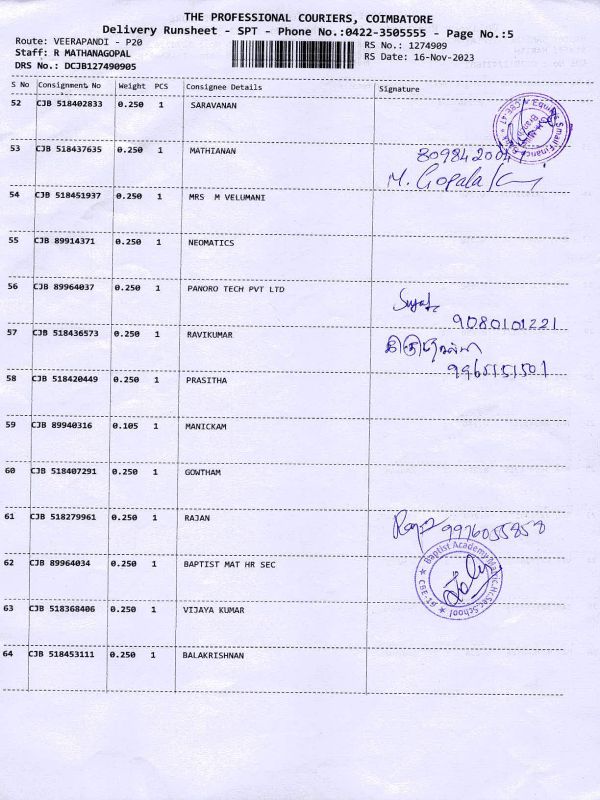 THE PROFESSIONAL COURIERS, COIMBATORE
Delivery Runsheet - SPT - Phone No.:0422-3505555 - Page No.:5
Route: VEERAPANDI - P20
Staff: R MATHANAGOPAL
DRS No.: DCJB127490905
RS No.: 1274909
RS Date: 16-Nov-2023
S No Consignment No Weight PCS Consignee Details Signature
52 CJB 518402833 0.250 1 SARAVANAN
53 CJB 518437635 0.250 1 MATHIANAN
M. Gopala
54 CJB 518451937 0.250 1 MRS M VELUMANI
55 CJB 89914371 0.250 1 NEOMATICS
56 CJB 89964037 0.250 1 PANORO TECH PVT LTD
9080101221
57 CJB 518436573 0.250 1 RAVIKUMAR
9965151501
58 CJB 518420449 0.250 1 PRASITHA
59 CJB 89940316 0.105 1 MANICKAM
60 CJB 518407291 0.250 1 GOWTHAM
61 CJB 518279961 0.250 1 RAJAN
9976055858
62 CJB 89964034 0.250 1 BAPTIST MAT HR SEC
Baptist Academy Matric.Hr.Sec.School
63 CJB 518368406 0.250 1 VIJAYA KUMAR
64 CJB 518453111 0.250 1 BALAKRISHNAN